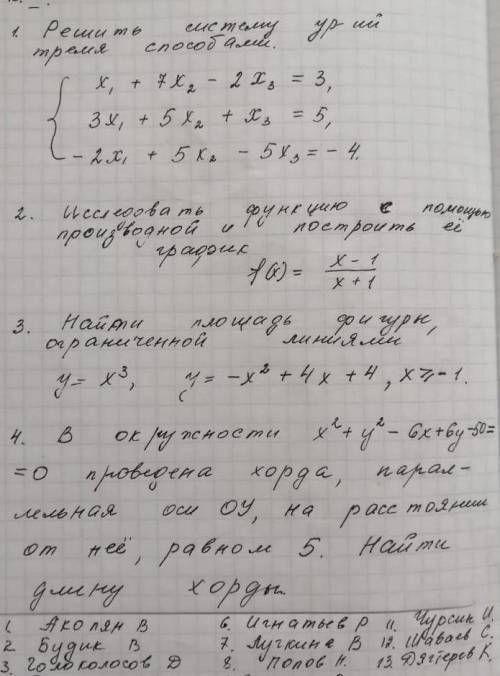 1. Решить систему ур-ий
тремя способами.
x₁ + 7x₂ - 2x₃ = 3,
3x₁ + 5x₂ + x₃ = 5,
-2x₁ + 5x₂ - 5x₃ = -4.
2. Исследовать функцию с помощью
производной и построить её
график
f(x) = (x - 1)/(x + 1)
3. Найти площадь фигуры,
ограниченной линиями
y = x³, y = -x² + 4x + 4, x ≥ -1.
4. В окружности x² + y² - 6x + 6y - 50 =
= 0 проведена хорда, парал-
лельная оси ОУ, на расстоянии
от неё, равном 5. Найти
длину хорды.
1. Акопян В 6. Игнатьев Р 11. Чурсин И.
2 Будик В 7. Лучкина В 12. Шаваев С.
3. Голоколосов Д 8. Попов Н. 13. Дягтерев К.